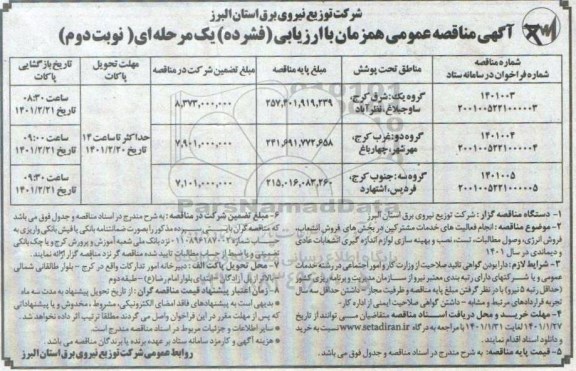 شرکت توزیع نیروی برق استان البرز
آگهی مناقصه عمومی همزمان با ارزیابی (فشرده) یک مرحله ای( نوبت دوم)
شماره مناقصه
شماره فراخوان در سامانه ستاد
مناطق تحت پوشش
مبلغ پایه مناقصه
مبلغ تضمین شرکت در مناقصه
مهلت تحویل پاکات
تاریخ بازگشایی پاکات
۱۴۰۱۰۰۳
۲۰۰۱۰۰۵۲۲۱۰۰۰۰۰۳
گروه یک: شرق کرج،
ساوجبلاغ، نظرآباد
۲۵۷,۴۰۱,۹۱۹,۲۳۹
۸,۳۷۳,۰۰۰,۰۰۰
ساعت ۰۸:۳۰
تاریخ ۱۴۰۱/۲/۲۱
۱۴۰۱۰۰۴
۲۰۰۱۰۰۵۲۲۱۰۰۰۰۰۴
گروه دو: غرب کرج،
مهرشهر، چهارباغ
۲۴۱,۶۹۱,۷۷۲,۶۵۸
۷,۹۰۱,۰۰۰,۰۰۰
حداکثر تا ساعت ۱۴
تاریخ ۱۴۰۱/۲/۲۰
ساعت ۰۹:۰۰
تاریخ ۱۴۰۱/۲/۲۱
۱۴۰۱۰۰۵
۲۰۰۱۰۰۵۲۲۱۰۰۰۰۰۵
گروه سه: جنوب کرج،
فردیس، اشتهارد
۲۱۵,۰۱۶,۰۸۳,۲۶۰
۷,۱۰۱,۰۰۰,۰۰۰
ساعت ۰۹:۳۰
تاریخ ۱۴۰۱/۲/۲۱
ParsNamadData
۱- دستگاه مناقصه گزار: شرکت توزیع نیروی برق استان البرز
۲- موضوع مناقصه: انجام فعالیت های خدمات مشترکین در بخش های فروش انشعاب،
فروش انرژی، وصول مطالبات، تست، نصب و بهینه سازی لوازم اندازه گیری انشعابات عادی
و دیماندی در سال ۱۴۰۱
۳- شرایط لازم: دارا بودن گواهی تائید صلاحیت از وزارت کار و امور اجتماعی در رشته خدمات
عمومی و یا شرکتهای دارای رتبه بندی معتبر نیرو از سازمان مدیریت و برنامه ریزی کشور
(حداقل رتبه ۵ نیرو) با در نظر گرفتن مبلغ پایه مناقصه و ظرفیت مجاز - داشتن حداقل سه سال
تجربه قراردادهای مرتبط و مشابه - داشتن گواهی صلاحیت ایمنی از اداره کار.
۴- مهلت خرید و محل دریافت اسناد مناقصه متقاضیان می توانند از تاریخ
۱۴۰۱/۱/۲۷ لغایت ۱۴۰۱/۱/۳۱ با مراجعه به درگاه www.setadiran.ir نسبت به خرید
و دانلود اسناد اقدام نمایند.
۵- قیمت پایه مناقصه: به شرح مندرج در اسناد مناقصه و جدول فوق می باشد.
۶- مبلغ تضمین شرکت در مناقصه: به شرح مندرج در اسناد مناقصه و جدول فوق می باشد
که مناقصه گران بایستی سپرده مذکور را بصورت ضمانتنامه بانکی یا فیش بانکی واریزی به
نزد بانک ملی شعبه آموزش و پرورش کرج و یا چک بانکی
مطالبات تایید شده مناقصه گر نزد مناقصه گزار ارائه نمایند.
۷- محل تحویل پاکت الف: دبیرخانه امور تدارکات واقع در کرج - بلوار طالقانی شمالی
- طبقه دوم
۸- زمان اعتبار پیشنهاد قیمت مناقصه گران: از تاریخ تحویل پیشنهاد به مدت سه ماه
* بدیهی است به پیشنهادهای فاقد امضای الکترونیکی، مشروط، مخدوش و یا پیشنهاداتی
که پس از مهلت مقرر در این فراخوان واصل می گردند مطلقا ترتیب اثر داده نخواهد شد.
* سایر اطلاعات و جزئیات مربوط در اسناد مناقصه مندرج است.
* هزینه آگهی و کارمزد سامانه ستاد بر عهده برنده یا برندگان مناقصه می باشد.
روابط عمومی شرکت توزیع نیروی برق استان البرز